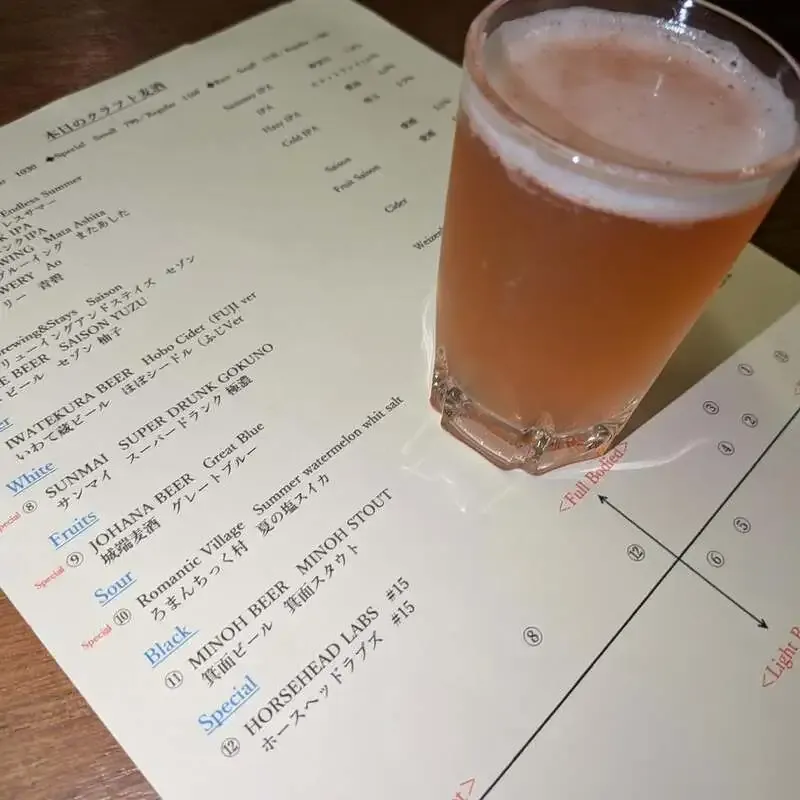 本日のクラフト麦酒
1030 ◆Special Small 790/Regular
Endless Summer
レスサマー
IPA
ンクIPA
WING Mata Ashita
ブルーイング またあした
WERY Ao
リー 青碧
rewing&Stays Saison
リューイングアンドステイズ セゾン
E BEER SAISON YUZU
ビール セゾン 柚子
IWATEKURA BEER Hobo Cider (FUJI ver
いわて蔵ビール ほぼシードル (ふじVer
White
Special ⑧ SUNMAI SUPER DRUNK GOKUNO
サンマイ スーパードランク 極濃
Fruits
Special ⑨ JOHANA BEER Great Blue
城端麦酒 グレートブルー
Sour
Special ⑩ Romantic Village Summer watermelon whit salt
ろまんちっく村 夏の塩スイカ
Black
⑪ MINOH BEER MINOH STOUT
箕面ビール 箕面スタウト
Special
⑫ HORSEHEAD LABS #15
ホースヘッドラブズ #15
IPA
Hazy IPA
Cold IPA
Saison
Fruit Saison
Cider
Weizen
①
③
②
④
<Full Bodied>
⑤
⑫
⑥
⑧
<Light B